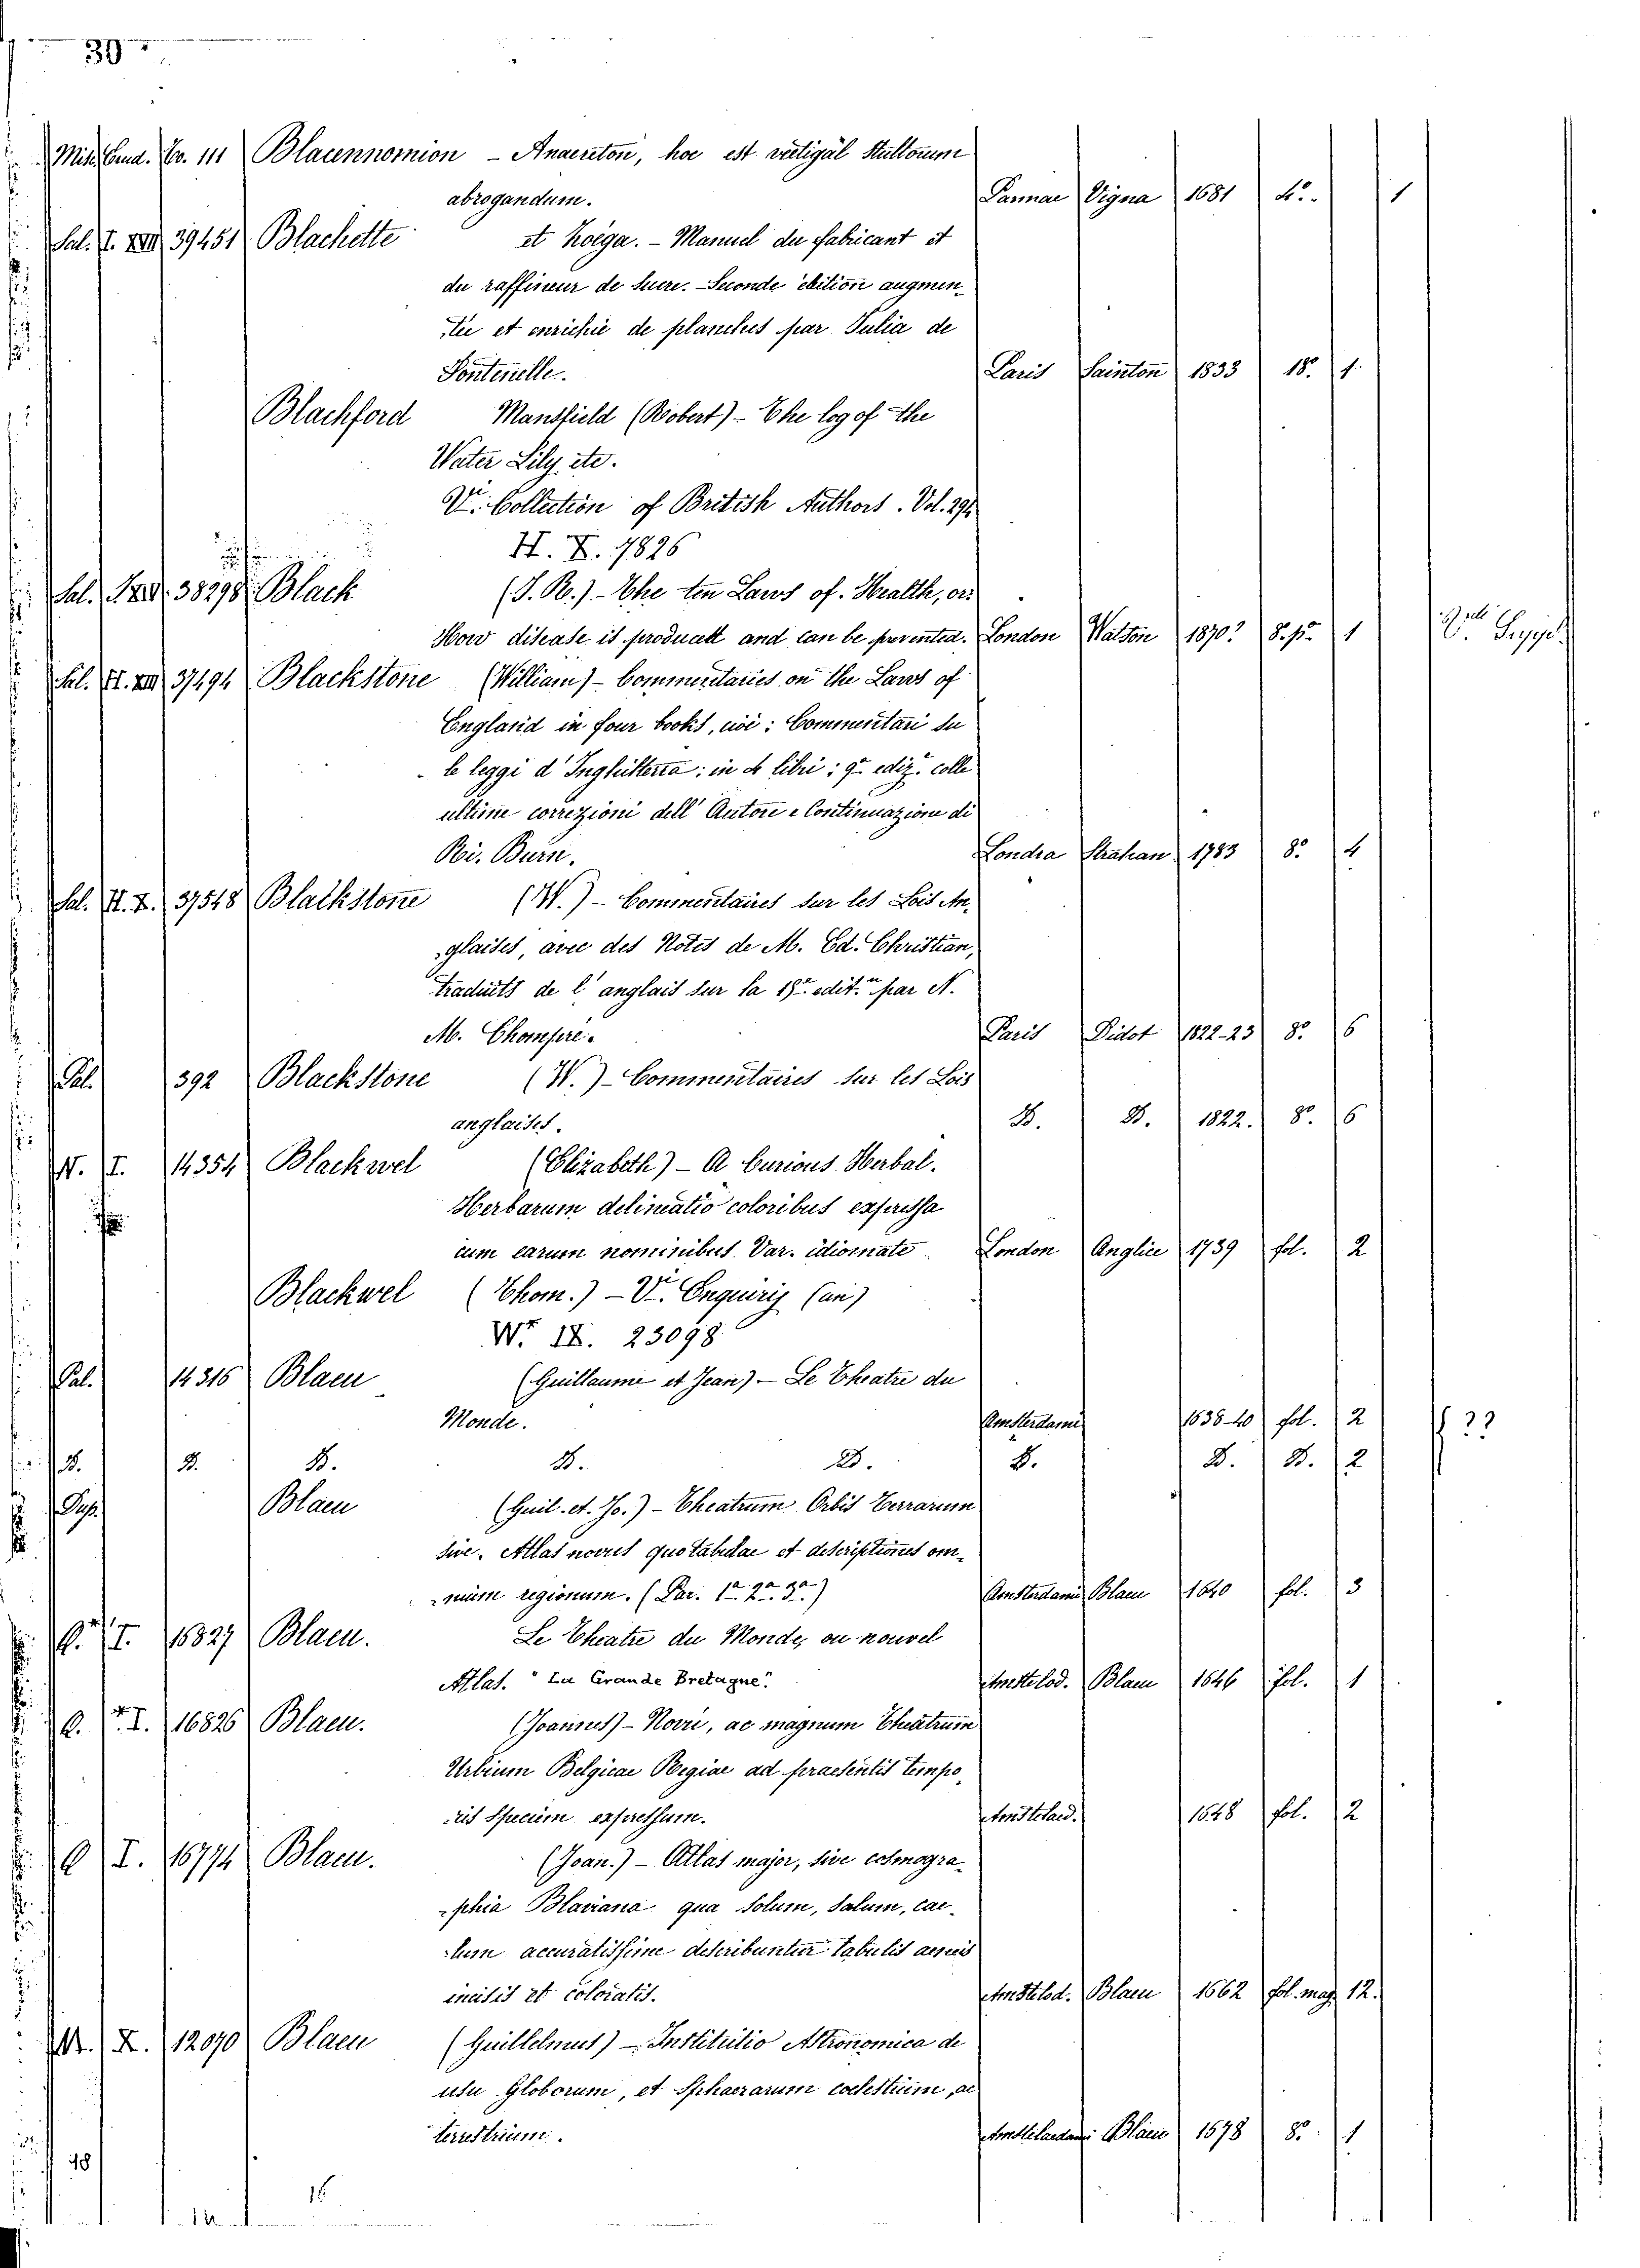 30
Misc. Co. 111 Blacennomion - Anaereton, hoc est vectigal Stultorum
abrogandum. Parmae Vigna 1681 4º. 1
Sal. I. XVIII 39451 Blachette et Koëga. - Manuel du fabricant et
du raffineur de Sucre. - Seconde édition augmen-
tée et enrichie de planches par Julia de
Fontenelle. Paris Sainton 1833 18º. 1.
Blachford Mansfield (Robert) - The log of the
Water Lily etc.
Vi. Collection of British Authors. Vol. 291
II. X. 7826
Sal. 38298 Black (J. R.) - The ten Laws of. Health, or:
How disease is produced and can be prevented. London Watson 1870? 8. pº. 1
Sal. II. XIII 37494 Blackstone (William) - Commentaries on the Laws of
England in four books, cioè: Commentari su
le leggi d'Inghilterra: in 4 libri: 9ª ediz.e colle
ultime correzioni dell'Autore e Continuazione di
Ri. Burn. Londra Strahan 1783 8º 4
Sal. II. X. 37518 Blackstone (W.) - Commentaires sur les Lois An-
glaises, avec des Notes de M. Ed. Christian,
traduits de l'anglais sur la 15e edit.n par N.
M. Chompré. Paris Didot 1822-23 8º 6
Pal. 392 Blackstone (W.) - Commentaires sur les Lois
anglaises. D. D. 1822. 8º. 6
N. I. 14354 Blackwel (Elizabeth) - A Curious Herbal.
Herbarum delineatio coloribus expressa
cum earum nominibus Var. idiomate London Anglice 1739 fol. 2
Blackwel (Thom.) - Vi. Enquiriy (an)
Wr IX. 23098
Pal. 14316 Blaeu (Guillaume et Jean) - Le Theatre du
Monde. Amsterdami 1638-40 fol. 2
D. D. D. D. D. D. D. D. 2
Dup. Blaeu (Guil. et. Jo.) - Theatrum Orbis Terrarum
sive, Atlas novus quo tabulae et descriptiones om-
nium regionum. (Par. 1ª 2ª 3ª) Amsterdami Blaeu 1640 fol. 3
Q. I. 16827 Blaeu. Le Theatre du Monde, ou nouvel
Atlas. "La Grande Bretagne" Amstelod. Blaeu 1646 fol. 1
Q. I. 16826 Blaeu. (Joannes) - Novri, ac magnum Theatrum
Urbium Belgicae Regiae ad praesentis tempo-
ris Specium expressum. Amstelaed. 1648 fol. 2
Q I. 16774 Blaeu. (Joan.) - Atlas major, sive cosmogra-
phia Blaviana qua Solum, Salum, cae-
lum accuratissime describuntur tabulis aeneis
incisis et coloratis. Amstelod. Blaeu 1662 fol. mag. 12.
M. X. 12070 Blaeu (Guillelmus) - Institutio Astronomica de
usu Globorum, et Sphaerarum coelestium, ac
terrestrium. Amstelaedami Blaeu 1678 8º 1
18
16
14